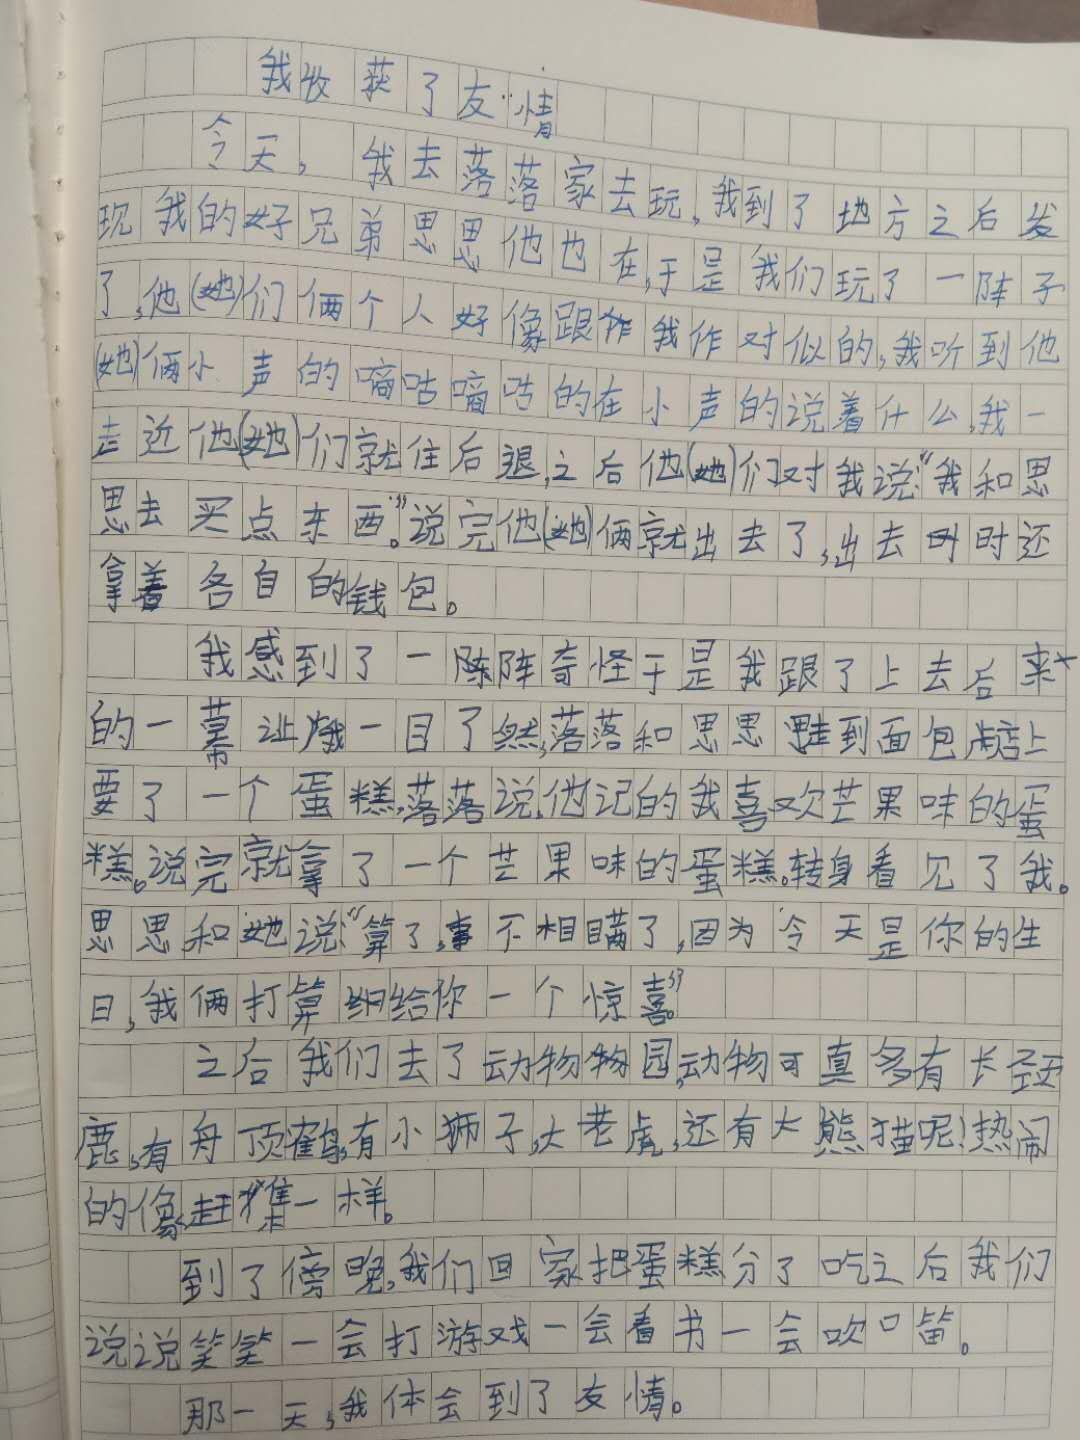 我收获了友情
今天，我去落落家去玩，我到了地方之后发
现我的好兄弟思思他也在，于是我们玩了一阵子
了，他(她)们俩个人好像跟我作对似的，我听到他
(她)俩小声的嘀咕嘀咕的在小声的说着什么，我一
走近他(她)们就往后退，之后他(她)们对我说：“我和思
思去买点东西。”说完他(她)俩就出去了，出去时还
拿着各自的钱包。
我感到了一阵阵奇怪于是我跟了上去后来
的一幕让我一目了然，落落和思思走到面包店上
要了一个蛋糕，落落说，他记的我喜欢芒果味的蛋
糕。说完就拿了一个芒果味的蛋糕。转身看见了我。
思思和她说：“算了，事不相瞒了，因为今天是你的生
日，我俩打算给你一个惊喜。”
之后我们去了动物物园，动物可真多有长颈
鹿，有舟顶鹤，有小狮子，大老虎，还有大熊猫呢！热闹
的像赶集一样。
到了傍晚，我们回家把蛋糕分了吃之后我们
说说笑笑一会打游戏一会看书一会吹口笛。
那一天，我体会到了友情。